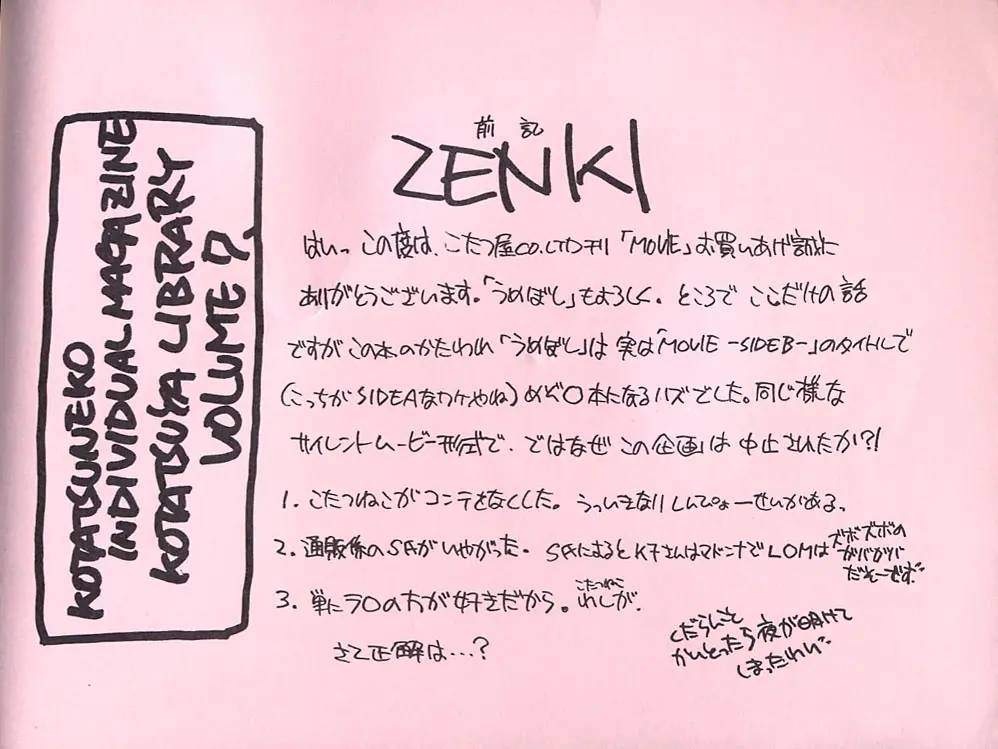 KOTATSUNEKO
INDIVIDUAL MAGAZINE
KOTATSUYA LIBRARY
VOLUME 7.
前記
ZENKI
はいっ この度は、こたつ屋CO.LTD刊「MOVIE」お買いあげ誠に
ありがとうございます。「うめぼし」もよろしく。ところで ここだけの話
ですが この本のかたわれ「うめぼし」は 実は「MOVIE -SIDEB-」のタイトルで
(こっちが SIDEAなワケやね)めぞ○本になるハズでした。同じ様な
サイレントムービー形式で。ではなぜ この企画は 中止されたか?!
1. こたつねこがコンテをなくした。 うっいきなりしんぴょーせいがある。
2. 通販係のS氏がいやがった。 S氏によると K子さんはマドンナで LOMは
ズボズボの
ガバガバ
だそーでず
3. 単にラ○の方が好きだから。わしが.
こたつねこ
さて正解は…?
くだらんこと
かいとったら夜が明けて
しまったわい